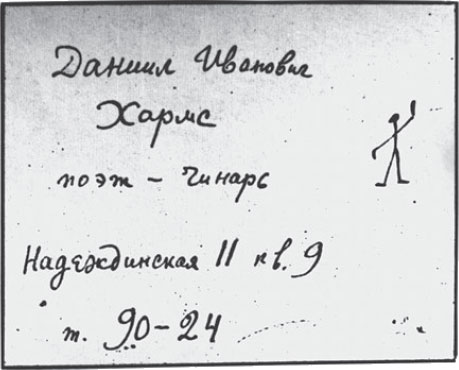 Даниил Иванович
Хармс
поэт – чинарь
Надеждинская 11 кв. 9
т. 90-24